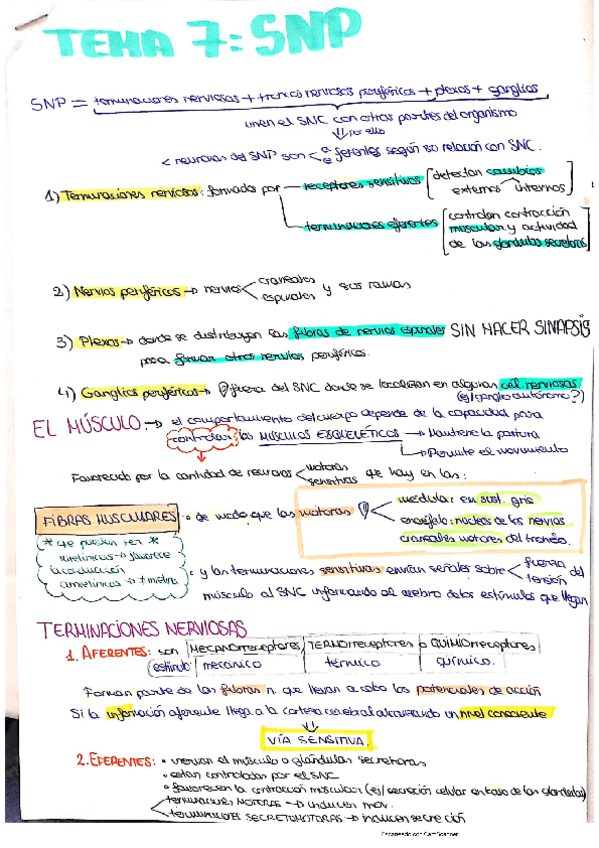 TEMA 7: SNP
SNP = terminaciones nerviosas + troncos nerviosos periféricos + plexos + ganglios
unen el SNC con otras partes del organismo
⇓ por ello
< neuronas del SNP son < a e ferentes según su relación con SNC.
1) Terminaciones nerviosas: formada por → receptores sensitivos [detectan cambios externos / internos]
→ terminaciones eferentes [controlan contracción muscular y actividad de las glándulas secretoras]
2) Nervios periféricos → nervios < craneales espinales y sus ramas
3) Plexos → donde se distribuyen las fibras de nervios espinales SIN HACER SINAPSIS
para formar otros nervios periféricos.
4) Ganglios periféricos → fuera del SNC donde se localizan en algunas cél. nerviosas
(ej/ganglio autónomo?)
EL MÚSCULO → el comportamiento del cuerpo depende de la capacidad para
controlar los MÚSCULOS ESQUELÉTICOS → Mantiene la postura
→ Permite el movimiento
Favorecido por la cantidad de neuronas < motoras sensitivas que hay en las:
FIBRAS MUSCULARES • de modo que las motoras < médula: en sust. gris
encéfalo: núcleos de los nervios
craneales motores del tronco.
* que pueden ser *
mielínicas → favorece
la conducción
amielínicas → + mielina
• y las terminaciones sensitivas envían señales sobre < fuerza tensión del
músculo al SNC informando al cerebro de los estímulos que llegan
TERMINACIONES NERVIOSAS
1. AFERENTES: son MECANOrreceptores, TERMOrreceptores o QUIMIOrreceptores
estímulo mecánico térmico químico.
Forman parte de las fibras n. que llevan a cabo los potenciales de acción
Si la información aferente llega a la corteza cerebral alcanzando un nivel consciente
⇓
VÍA SENSITIVA.
2. EFERENTES: • inervan el músculo o glándulas secretoras
• están controladas por el SNC
• favorecen la contracción muscular (ej/ secreción celular en caso de las glándulas)
terminaciones MOTORAS → inducen mov.
terminaciones SECRETOMOTORAS → inducen secreción
Escaneado con CamScanner